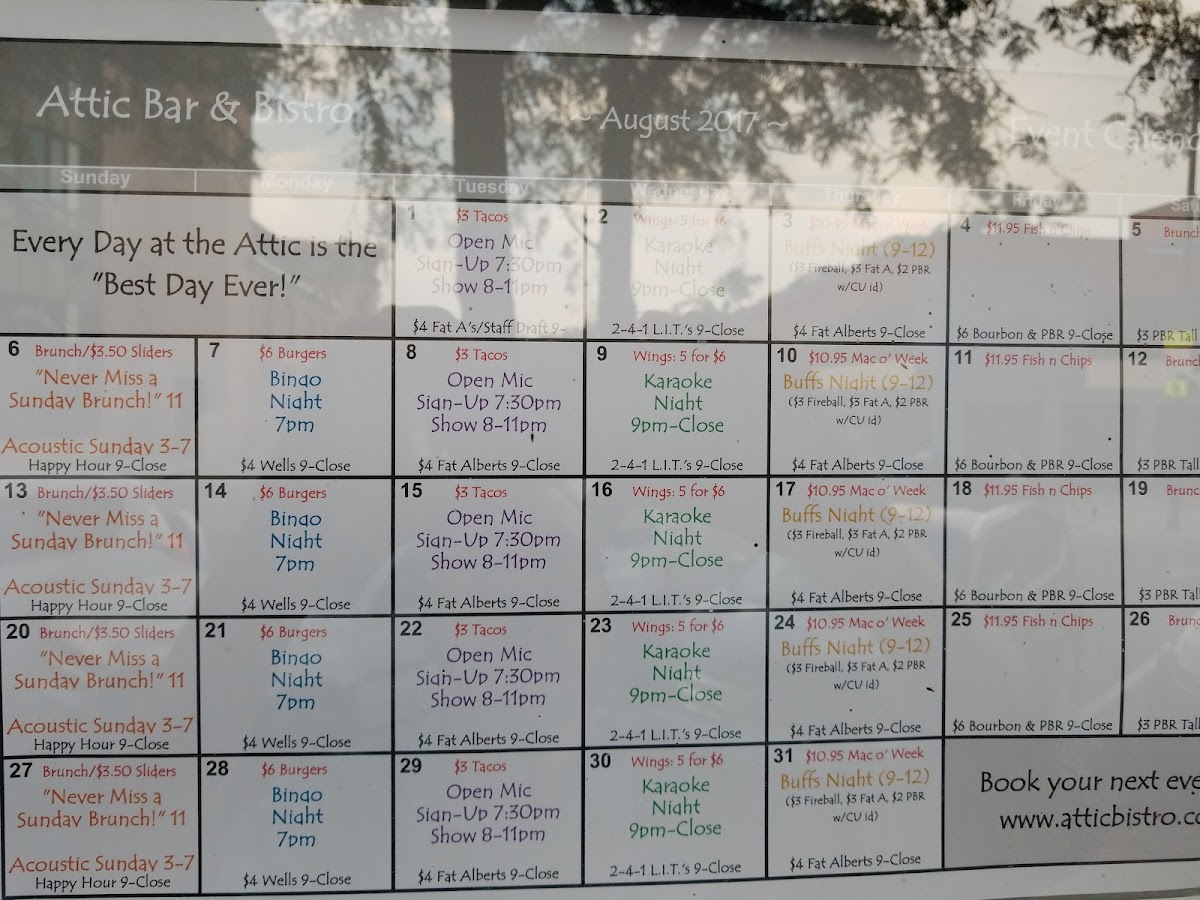 Attic Bar & Bistro
~ August 2017 ~
Event Calend
Sunday
Monday
Tuesday
Wednesday
Thursday
Friday
Sat
Every Day at the Attic is the
"Best Day Ever!"
1 $3 Tacos
Open Mic
Sign-Up 7:30pm
Show 8-11pm
$4 Fat A's/Staff Draft 9-
2 Wings: 5 for $6
Karaoke
Night
9pm-Close
2-4-1 L.I.T.'s 9-Close
3 $10.95 Mac o' Week
Buffs Night (9-12)
($3 Fireball, $3 Fat A, $2 PBR
w/CU id)
$4 Fat Alberts 9-Close
4 $11.95 Fish n Chips
$6 Bourbon & PBR 9-Close
5 Brunch
$3 PBR Tall
6 Brunch/$3.50 Sliders
"Never Miss a
Sunday Brunch!" 11
Acoustic Sunday 3-7
Happy Hour 9-Close
7 $6 Burgers
Bingo
Night
7pm
$4 Wells 9-Close
8 $3 Tacos
Open Mic
Sign-Up 7:30pm
Show 8-11pm
$4 Fat Alberts 9-Close
9 Wings: 5 for $6
Karaoke
Night
9pm-Close
2-4-1 L.I.T.'s 9-Close
10 $10.95 Mac o' Week
Buffs Night (9-12)
($3 Fireball, $3 Fat A, $2 PBR
w/CU id)
$4 Fat Alberts 9-Close
11 $11.95 Fish n Chips
$6 Bourbon & PBR 9-Close
12 Brunc
$3 PBR Tall
13 Brunch/$3.50 Sliders
"Never Miss a
Sunday Brunch!" 11
Acoustic Sunday 3-7
Happy Hour 9-Close
14 $6 Burgers
Bingo
Night
7pm
$4 Wells 9-Close
15 $3 Tacos
Open Mic
Sign-Up 7:30pm
Show 8-11pm
$4 Fat Alberts 9-Close
16 Wings: 5 for $6
Karaoke
Night
9pm-Close
2-4-1 L.I.T.'s 9-Close
17 $10.95 Mac o' Week
Buffs Night (9-12)
($3 Fireball, $3 Fat A, $2 PBR
w/CU id)
$4 Fat Alberts 9-Close
18 $11.95 Fish n Chips
$6 Bourbon & PBR 9-Close
19 Brunc
$3 PBR Tall
20 Brunch/$3.50 Sliders
"Never Miss a
Sunday Brunch!" 11
Acoustic Sunday 3-7
Happy Hour 9-Close
21 $6 Burgers
Bingo
Night
7pm
$4 Wells 9-Close
22 $3 Tacos
Open Mic
Sign-Up 7:30pm
Show 8-11pm
$4 Fat Alberts 9-Close
23 Wings: 5 for $6
Karaoke
Night
9pm-Close
2-4-1 L.I.T.'s 9-Close
24 $10.95 Mac o' Week
Buffs Night (9-12)
($3 Fireball, $3 Fat A, $2 PBR
w/CU id)
$4 Fat Alberts 9-Close
25 $11.95 Fish n Chips
$6 Bourbon & PBR 9-Close
26 Brunc
$3 PBR Tall
27 Brunch/$3.50 Sliders
"Never Miss a
Sunday Brunch!" 11
Acoustic Sunday 3-7
Happy Hour 9-Close
28 $6 Burgers
Bingo
Night
7pm
$4 Wells 9-Close
29 $3 Tacos
Open Mic
Sign-Up 7:30pm
Show 8-11pm
$4 Fat Alberts 9-Close
30 Wings: 5 for $6
Karaoke
Night
9pm-Close
2-4-1 L.I.T.'s 9-Close
31 $10.95 Mac o' Week
Buffs Night (9-12)
($3 Fireball, $3 Fat A, $2 PBR
w/CU id)
$4 Fat Alberts 9-Close
Book your next eve
www.atticbistro.co